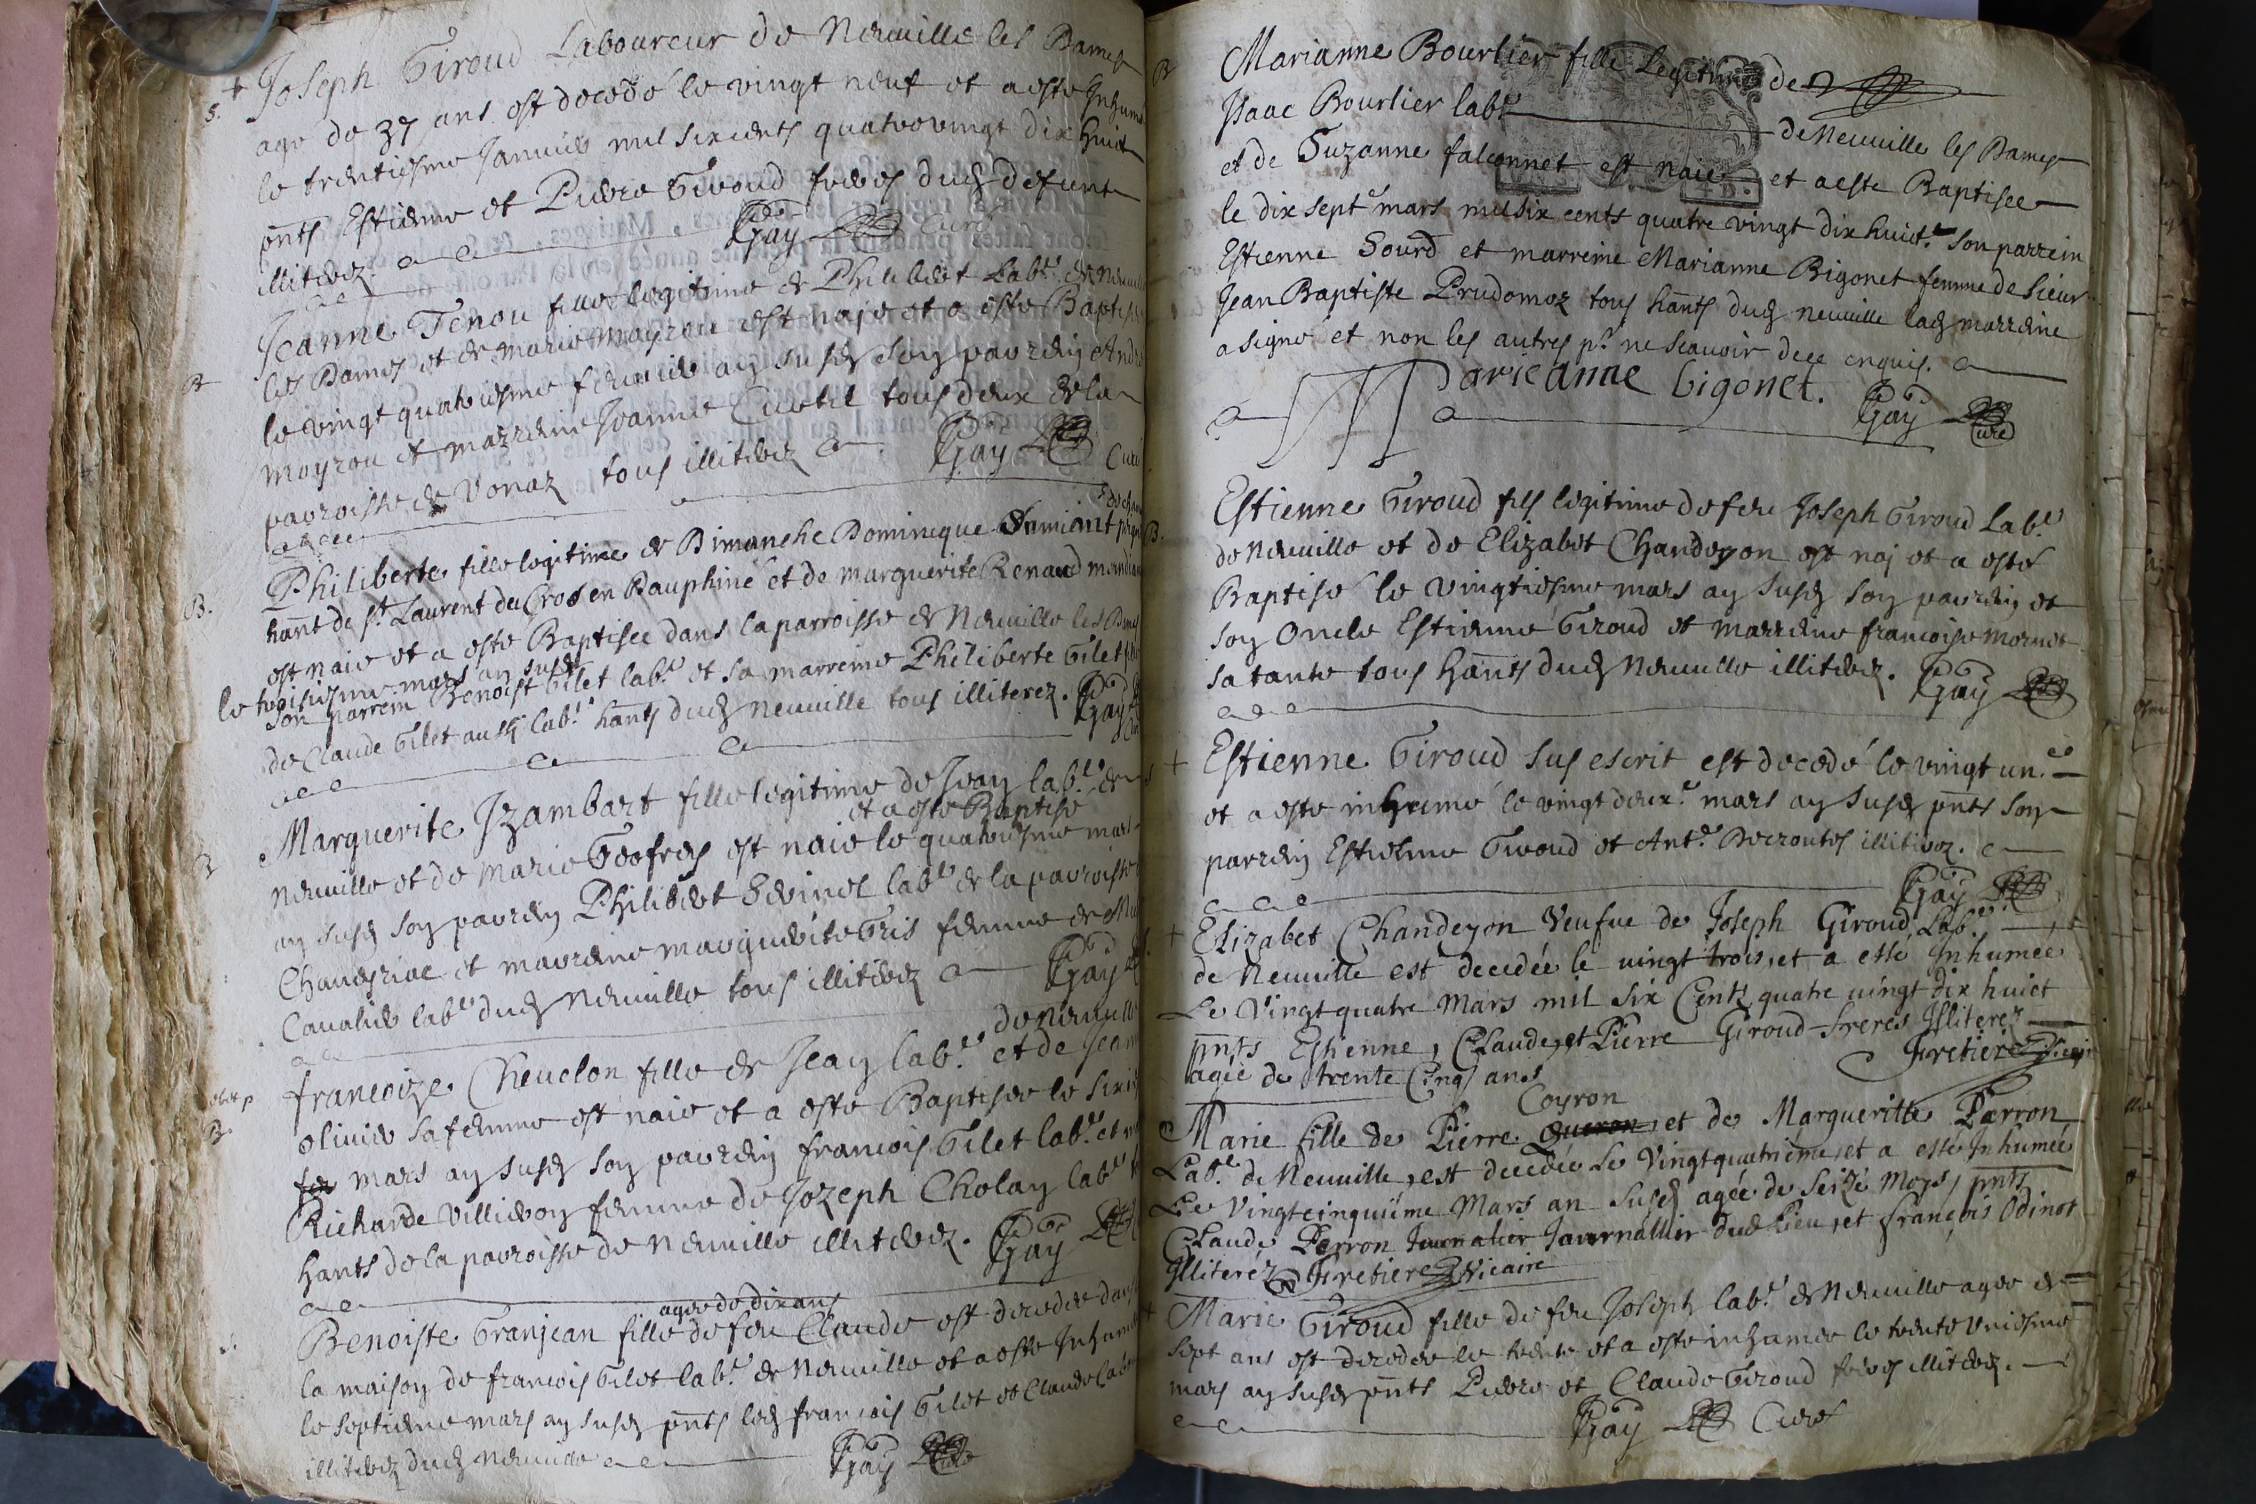 S. + Joseph Giroud Laboureur de Neuville les Dames
age de 37 ans est decedé le vingt neuf et a esté Inhumé
le trentiesme Janvier mil six cents quatrevingt dix huict
pnts Estienne et Pierre Giroud freres dud defunt
illiterez. Gay Curé
Jeanne Tenou fille legitime de Philibert Labr. de Neuville
B les Dames et de Marie Mayrou est naie et a esté Baptisée
le vingt quatriesme fevrier an susd son parrein André
Mayrou et marreine Jeanne Curtil tous deux de la
parroisse de Vonaz tous illiterez Gay Curé
Philiberte fille legitime de Dimanche Dominique Damiant
B. hant de st Laurent du Cros en Dauphiné et de marguerite Renaud
est naie et a esté Baptisée dans la parroisse de Neuville les Dames
le troisiesme mars an susd
son parrein Benoist Gilet labr et sa marreine Philiberte Gilet
de Claude Gilet aussi labr hants dud neuville tous illiterez. Gay
Marguerite Izambart fille legitime de Jean labr. de
et a esté Baptisé
B Neuville et de Marie Geofrey est naie le quatriesme mars
an susd son parrein Philibert Sevinet labr de la parroisse
Chaneyriac et marreine marguerite Gris femme de
Cavalier labr dud Neuville tous illiterez Gay
de neuville
francoize Cheuclon fille de Jean labr. et de Jeanne
B. olivier sa femme est naie et a esté Baptisée le
mars an susd son parrein francois Gilet labr. et
Richarde Villieroy femme de Jozeph Cholay labr
hants de la parroisse de Neuville illiterez. Gay
agée de dix ans
Benoiste Granjean fille de feu Claude est decedée dans
la maison de francois Gilet labr. de Neuville et a esté Inhumée
le septieme mars an susd pnts led francois Gilet et Claude
illiterez dud Neuville Gay Curé
B Marianne Bourlier fille legitime de
Isaac Bourlier labr de Neuville les Dames
et de Suzanne falconnet est naie et a esté Baptisée
le dix sept mars mil six cents quatre vingt dix huict. son parrein
Estienne Sourd et marreine Marianne Bigonet femme de Sieur
Jean Baptiste Prudomoz tous hants dud neuville lad marreine
a signé et non les autres pr. ne scavoir dece enquis.
Marieanne bigonet. Gay Curé
Estienne Giroud fils legitime de feu Joseph Giroud Labr
B. de Neuville et de Elizabet Chandeyon est naj et a esté
Baptisé le vingtiesme mars an susd son parrein et
son Oncle Estienne Giroud et marreine francoise Mornet
sa tante tous hants dud Neuville illiterez. Gay
+ Estienne Giroud sus escrit est decedé le vingt un.e
et a esté inhumé le vingt deux.e mars an susd pnts son
parrein Estienne Giroud et Ant.e Decroutes illiterez.
Gay
+ Elizabet Chandeyon Veufue de Joseph Giroud Labr.
de Neuville est decedée le vingt trois, et a esté Inhumée
Le Vingt quatre Mars mil six Cents quatre vingt dix huict
pnts Estienne, Claude, et Pierre Giroud freres Illiterez
agée de trente Cinq ans Fretiere Vicaire
Coyron
Marie fille de Pierre Queron, et de Margueritte Perron
Labr. de Neuville, est decedée Le Vingtquatrieme, et a esté Inhumée
Le Vingtcinquiême Mars an susd agée de Seize Moys, pnts
Claude Perron Journalier Journallier dud Lieu, et françois Odinot
Illiteréz Fretiere Vicaire
+ Marie Giroud fille de feu Joseph labr. de Neuville agée de
sept ans est decedée le trente et a esté inhumée le trente Uniesme
mars an susd pnts Pierre et Claude Giroud freres illiterez.
Gay Curé